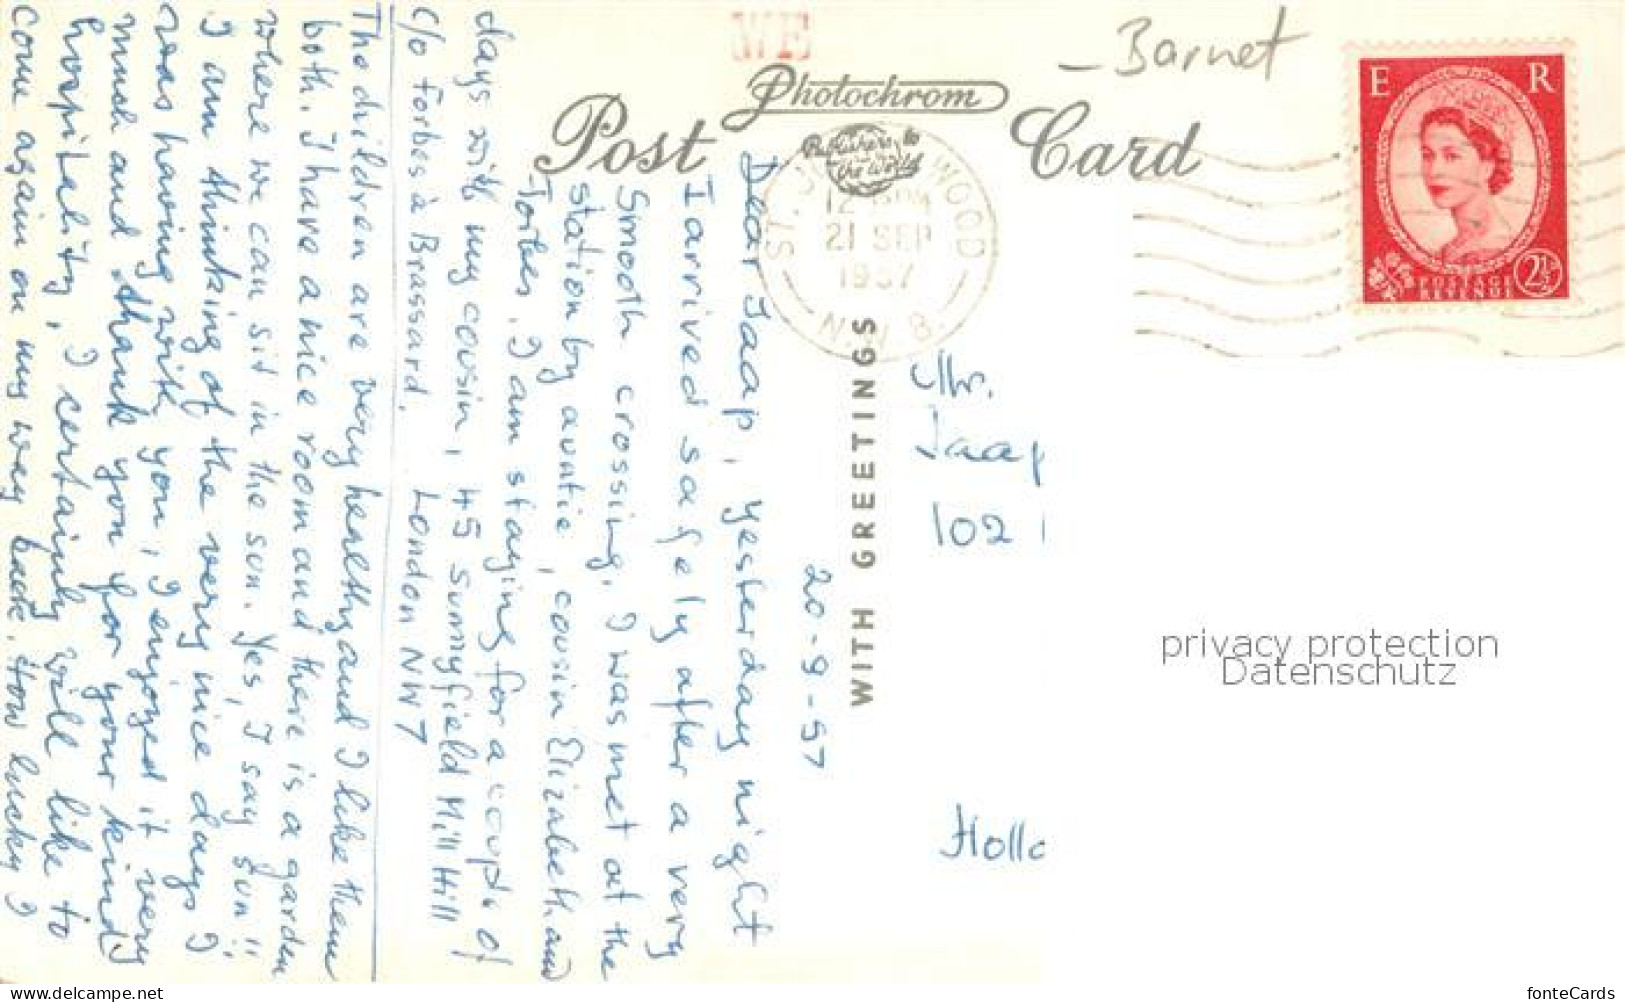 WF
- Barnet
Photochrom
Post Card
Publishers to
the World
E R
POSTAGE
REVENUE
2½
ST. WOOD
12
21 SEP
1957
N.W 8.
WITH GREETINGS
20-9-57
Dear Jaap, yesterday night
I arrived safely after a very
smooth crossing. I was met at the
station by auntie, cousin Elizabeth and
Torbes. I am staying for a couple of
days with my cousin, 45 Sunnyfield Mill Hill
c/o Forbes à Brassard. London NW7
The children are very healthy and I like them
both. I have a nice room and there is a garden
where we can sit in the sun. Yes, I say sun!!
I am thinking of the very nice days I
was having with you, I enjoyed it very
much and thank you for your kind
hospitality, I certainly will like to
come again on my way back. How lucky I
Mr.
Jaap
102
Holla
privacy protection
Datenschutz
fonteCards